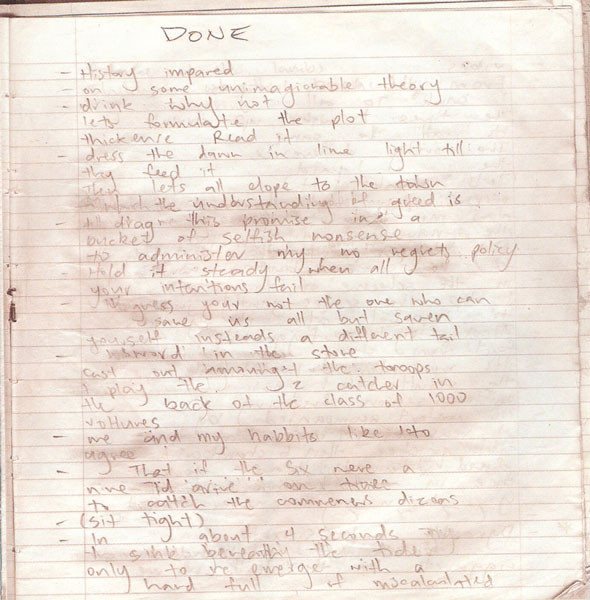 DONE
- History impared
- on some unimagionable theory
- drink why not
lets formulate the plot
thickense Read it
- dress the dawn in lime light till
they feed it
Then lets all elope to the
the understanding of greed is
- to this promise a
bucket of selfish nonsense
to administer my no regrets policy
- Hold it steady when all
your intentions fail
- I guess your not the one who can
save us all but
yourself insteads a different tail
- in the store
cast out the troops
I play the catcher in
the back of the class of 1000
voltures
- me and my habbits like to
agree
- That if the six were a
nine I'd arive on
to catch the
- (sit tight)
- In about 4 seconds
sink the tide
only to re emerge with a
hand full of